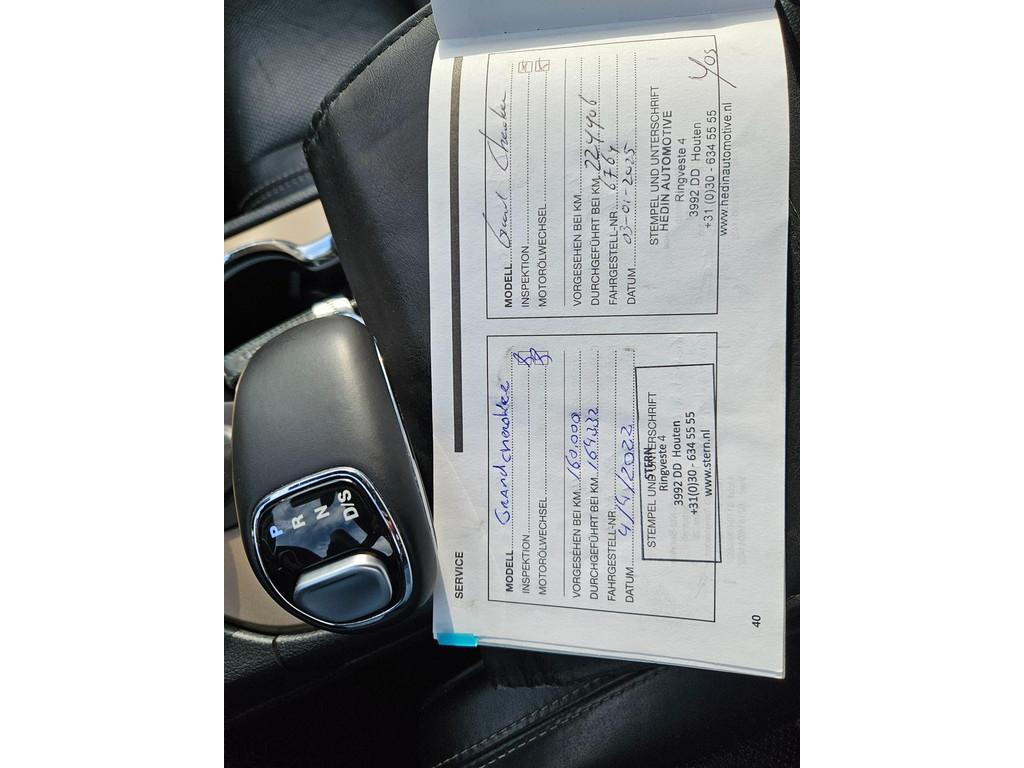 SERVICE
MODELL Grandcherokee
INSPEKTION
MOTORÖLWECHSEL
VORGESEHEN BEI KM 160.000
DURCHGEFÜHRT BEI KM 169.222
FAHRGESTELL-NR.
DATUM 4/4/2022
STEMPEL UND UNTERSCHRIFT
STERN
Ringveste 4
3992 DD Houten
+31(0)30 - 634 55 55
www.stern.nl
MODELL Grand Cherokee
INSPEKTION
MOTORÖLWECHSEL
VORGESEHEN BEI KM
DURCHGEFÜHRT BEI KM 224406
FAHRGESTELL-NR. 6764
DATUM 03-01-2025
STEMPEL UND UNTERSCHRIFT
HEDIN AUTOMOTIVE
Ringveste 4
3992 DD Houten
+31 (0)30 - 634 55 55
www.hedinautomotive.nl
Yos
40
P
R
N
D/S